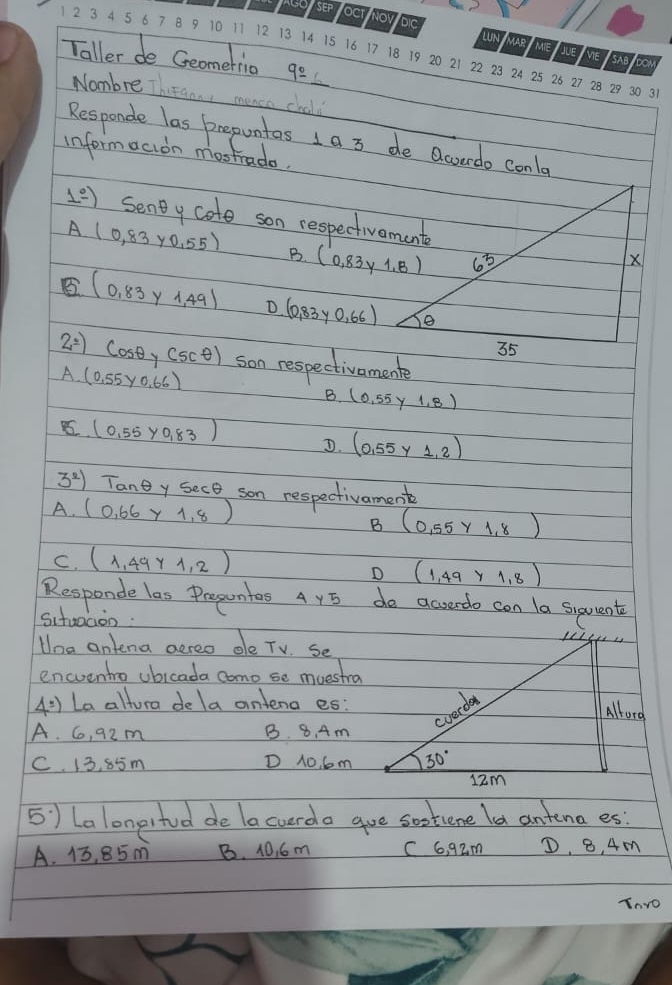 AGO SEP OCT NOV DIC
LUN MAR MIE JUE VIE SAB DOM
1 2 3 4 5 6 7 8 9 10 11 12 13 14 15 16 17 18 19 20 21 22 23 24 25 26 27 28 29 30 31
Taller de Geometrio 9º
Nombre
Responde las prepuntas 1 a 3 de acuerdo con la
información mostrada.
1º) Senθ y cotθ son respectivamente
A. (0,83 y 0,55)
B. (0,83 y 1,8)
63
X
(0,83 y 1,49)
D. (0,83 y 0,66)
θ
35
2º) Cosθ y Cscθ) son respectivamente
A. (0,55 y 0,66)
B. (0,55 y 1,8)
(0,55 y 0,83)
D. (0,55 y 1,2)
3º) Tanθ y Secθ son respectivamente
A. (0,66 y 1,8)
B (0,55 y 1,8)
C. (1,49 y 1,2)
D (1,49 y 1,8)
Responde las Preguntas 4 y 5 de acuerdo con la siguiente
situación:
Una antena aereo de TV. Se
encuentro ubicada como se muestra
4º) La altura de la antena es:
A. 6,92m
B. 8,4m
C. 13,85m
D 10,6m
cuerda
Altura
30°
12m
5º) La longitud de la cuerda que sostiene la antena es:
A. 13,85m
B. 10,6m
C 6,92m
D. 8,4m